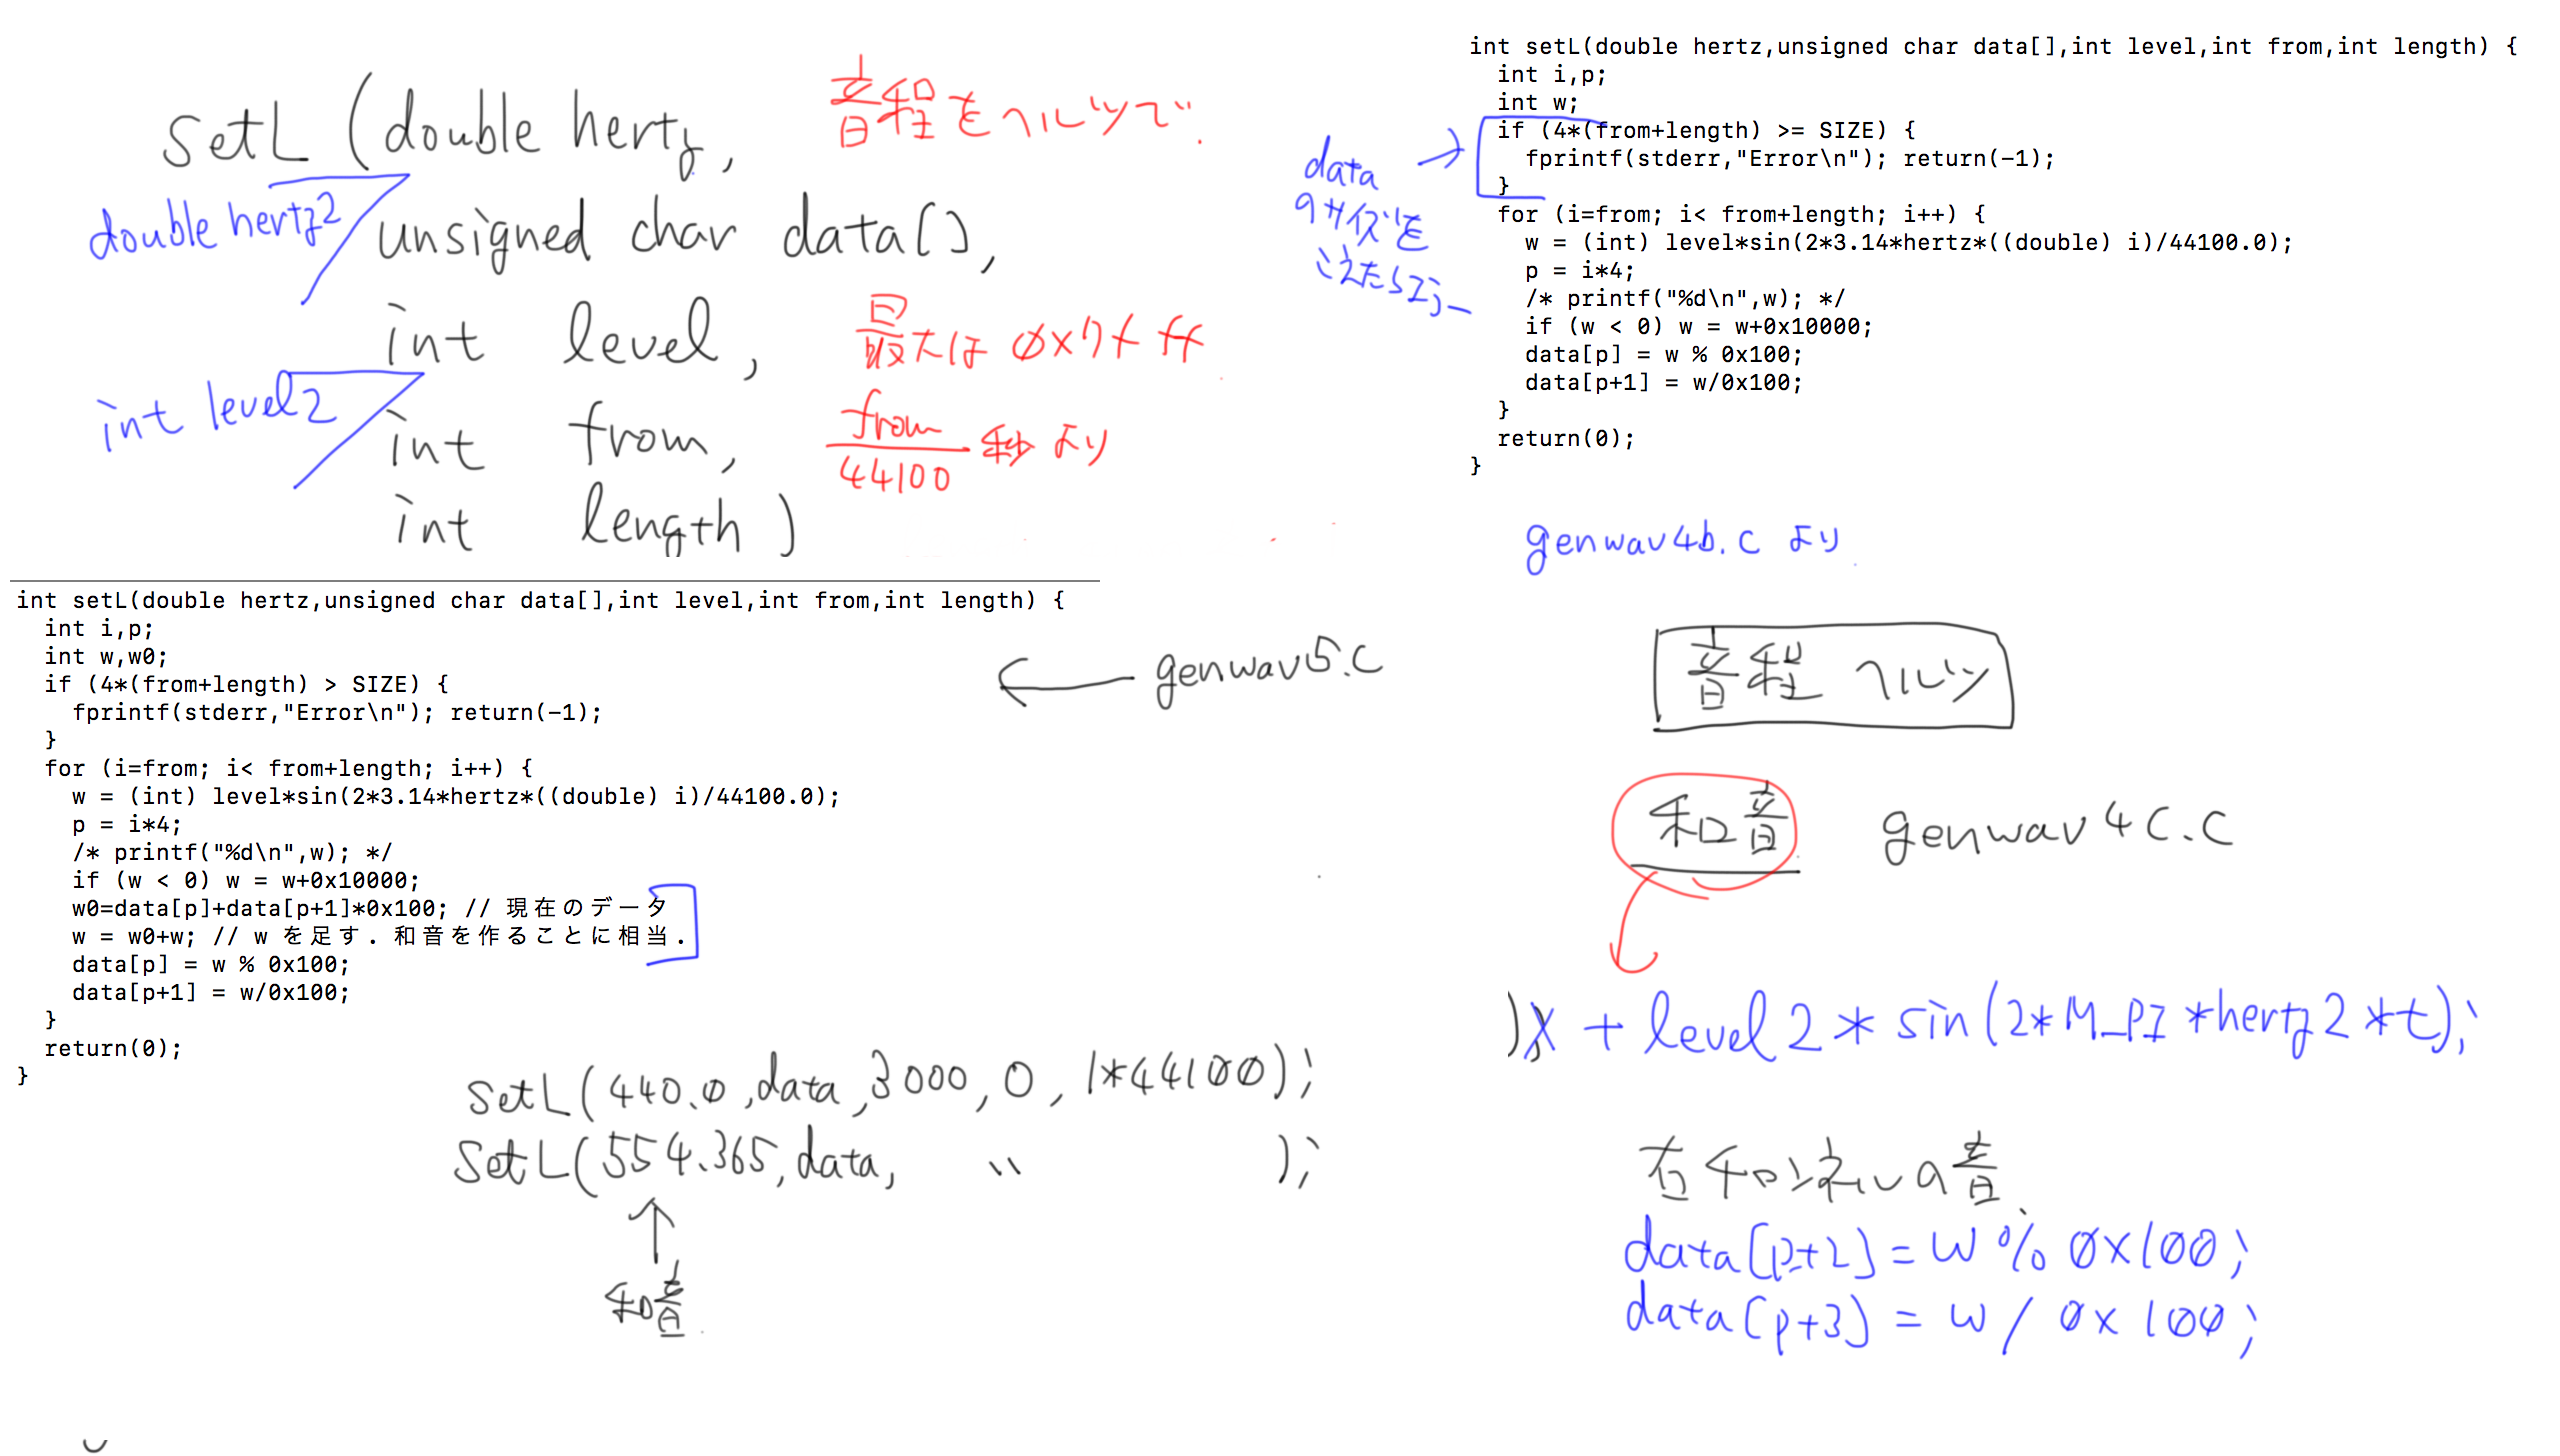 setL (double hertz,
音程をヘルツで.
double hertz2
unsigned char data[],
int level,
最大は 0x7fff
int level2
int from,
from
44100
秒より
int length)
int setL(double hertz,unsigned char data[],int level,int from,int length) {
int i,p;
int w;
if (4*(from+length) >= SIZE) {
fprintf(stderr,"Error\n"); return(-1);
}
for (i=from; i< from+length; i++) {
w = (int) level*sin(2*3.14*hertz*((double) i)/44100.0);
p = i*4;
/* printf("%d\n",w); */
if (w < 0) w = w+0x10000;
data[p] = w % 0x100;
data[p+1] = w/0x100;
}
return(0);
}
data
のサイズを
こえたらエラー
genwav4b.c より
int setL(double hertz,unsigned char data[],int level,int from,int length) {
int i,p;
int w,w0;
if (4*(from+length) > SIZE) {
fprintf(stderr,"Error\n"); return(-1);
}
for (i=from; i< from+length; i++) {
w = (int) level*sin(2*3.14*hertz*((double) i)/44100.0);
p = i*4;
/* printf("%d\n",w); */
if (w < 0) w = w+0x10000;
w0=data[p]+data[p+1]*0x100; // 現在のデータ
w = w0+w; // w を足す. 和音を作ることに相当.
data[p] = w % 0x100;
data[p+1] = w/0x100;
}
return(0);
}
← genwav5.c
setL(440.0,data,3000,0,1*44100);
setL(554.365,data, 〃 );
↑
和音
音程 ヘルツ
和音 genwav4c.c
+ level2*sin(2*M_PI*hertz2*t);
data[p+2] = w % 0x100;
data[p+3] = w / 0x100;